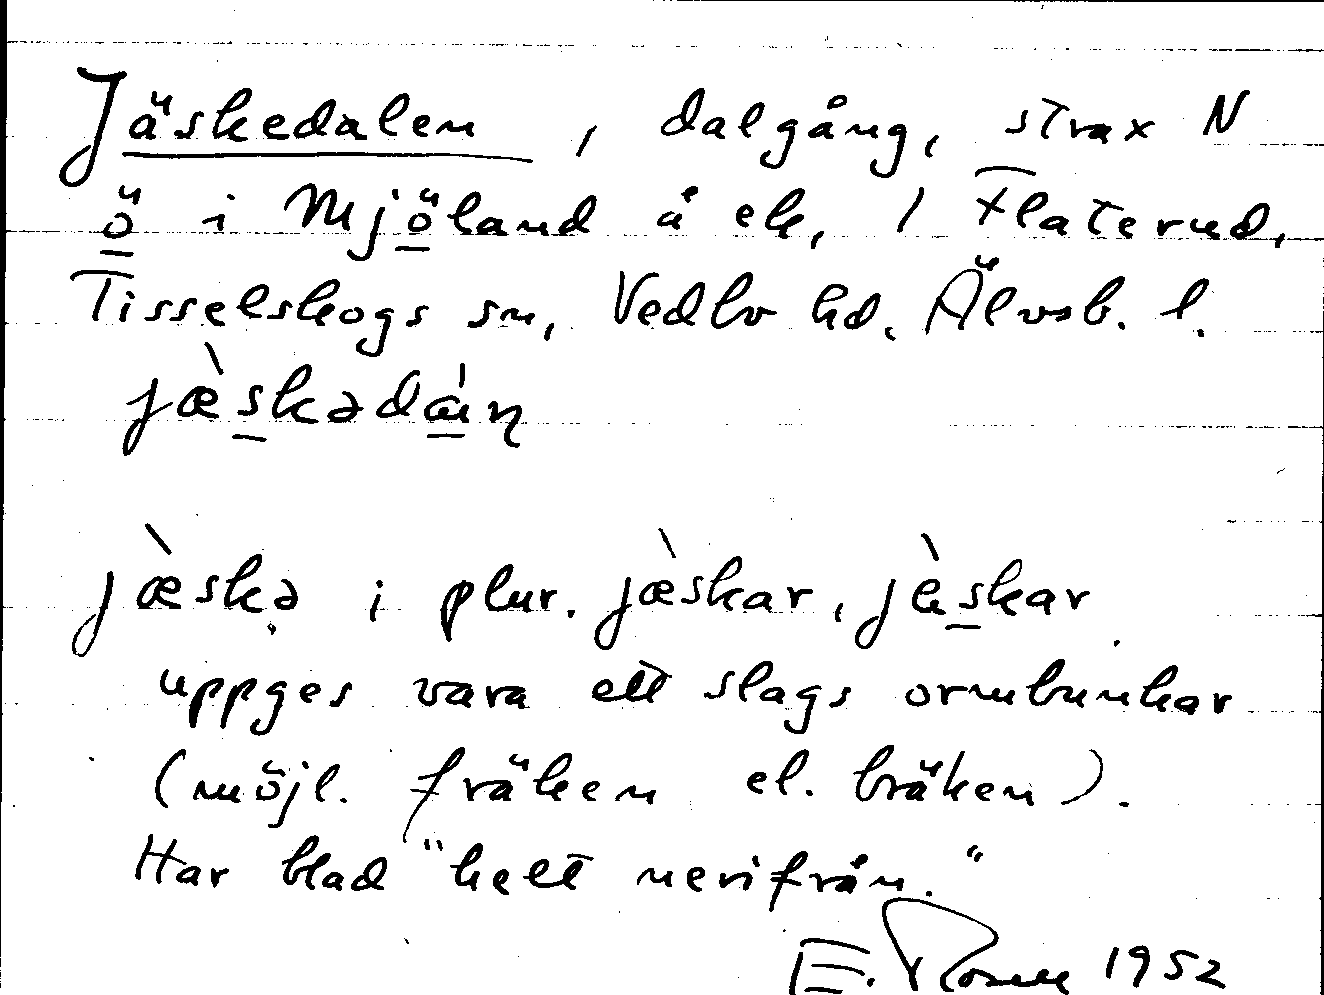 Jäskedalen, dalgång, strax N
ö i Mjöland å ek, / Flaterud,
Tisselskogs sn, Vedbo hd. Älvsb. l.
jæ̀skədán
jæ̀skə i plur. jæ̀skar, jè̀skar
uppges vara ett slags ormbunkar
(möjl. fräken el. bräken).
Har blad "helt nerifrån."
E. Rosell 1952